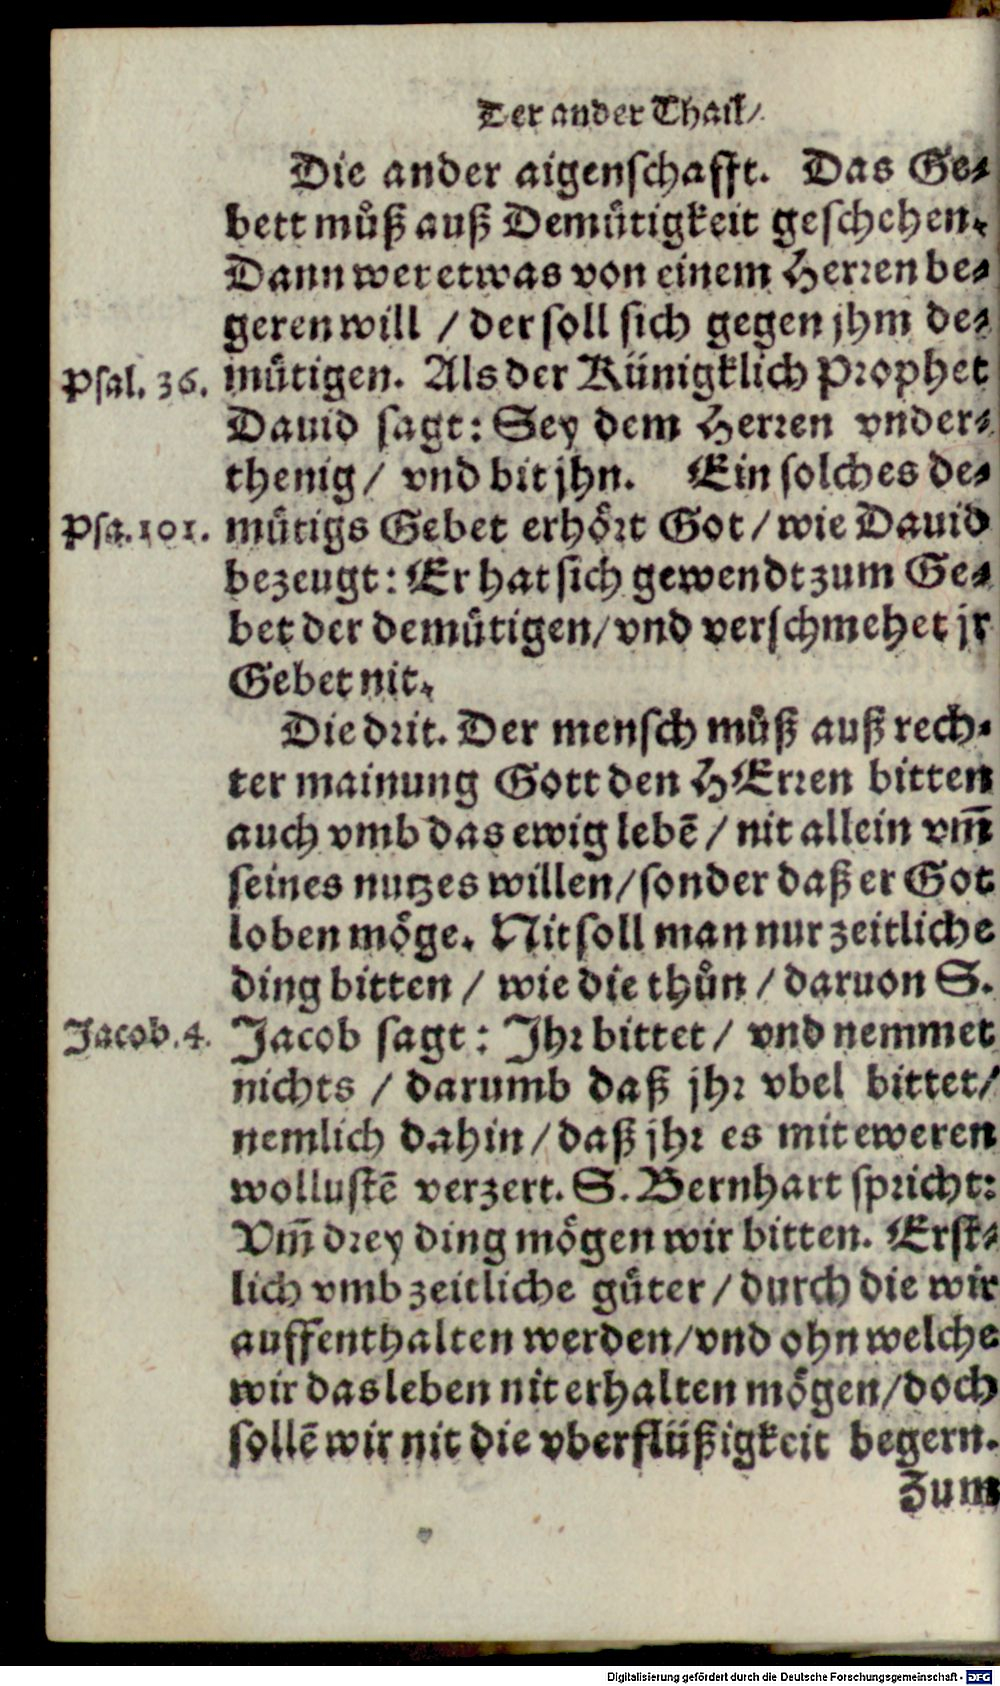 Der ander Thail/
Die ander aigenschafft. Das Ge-
bett můß auß Demůtigkeit geschehen.
Dann wer etwas von einem Herren be-
geren will / der soll sich gegen jhm de-
Psal. 36. můtigen. Als der Künigklich Prophet
Dauid sagt: Sey dem Herren vnder-
thenig / vnd bit jhn. Ein solches de-
Psa. 101. můtigs Gebet erhört Got / wie Dauid
bezeugt: Er hat sich gewendt zum Ge-
bet der demůtigen / vnd verschmehet jr
Gebet nit.
Die drit. Der mensch můß auß rech-
ter mainung Gott den HErren bitten
auch vmb das ewig lebē / nit allein vm̄
seines nutzes willen / sonder daß er Got
loben möge. Nit soll man nur zeitliche
ding bitten / wie die thůn / daruon S.
Jacob. 4. Jacob sagt: Jhr bittet / vnd nemmet
nichts / darumb daß jhr vbel bittet /
nemlich dahin / daß jhr es mit eweren
wollustē verzert. S. Bernhart spricht:
Vm̄ drey ding mögen wir bitten. Erst-
lich vmb zeitliche gůter / durch die wir
auffenthalten werden / vnd ohn welche
wir das leben nit erhalten mögen / doch
sollē wir nit die vberflüßigkeit begern.
Zum
Digitalisierung gefördert durch die Deutsche Forschungsgemeinschaft - DFG